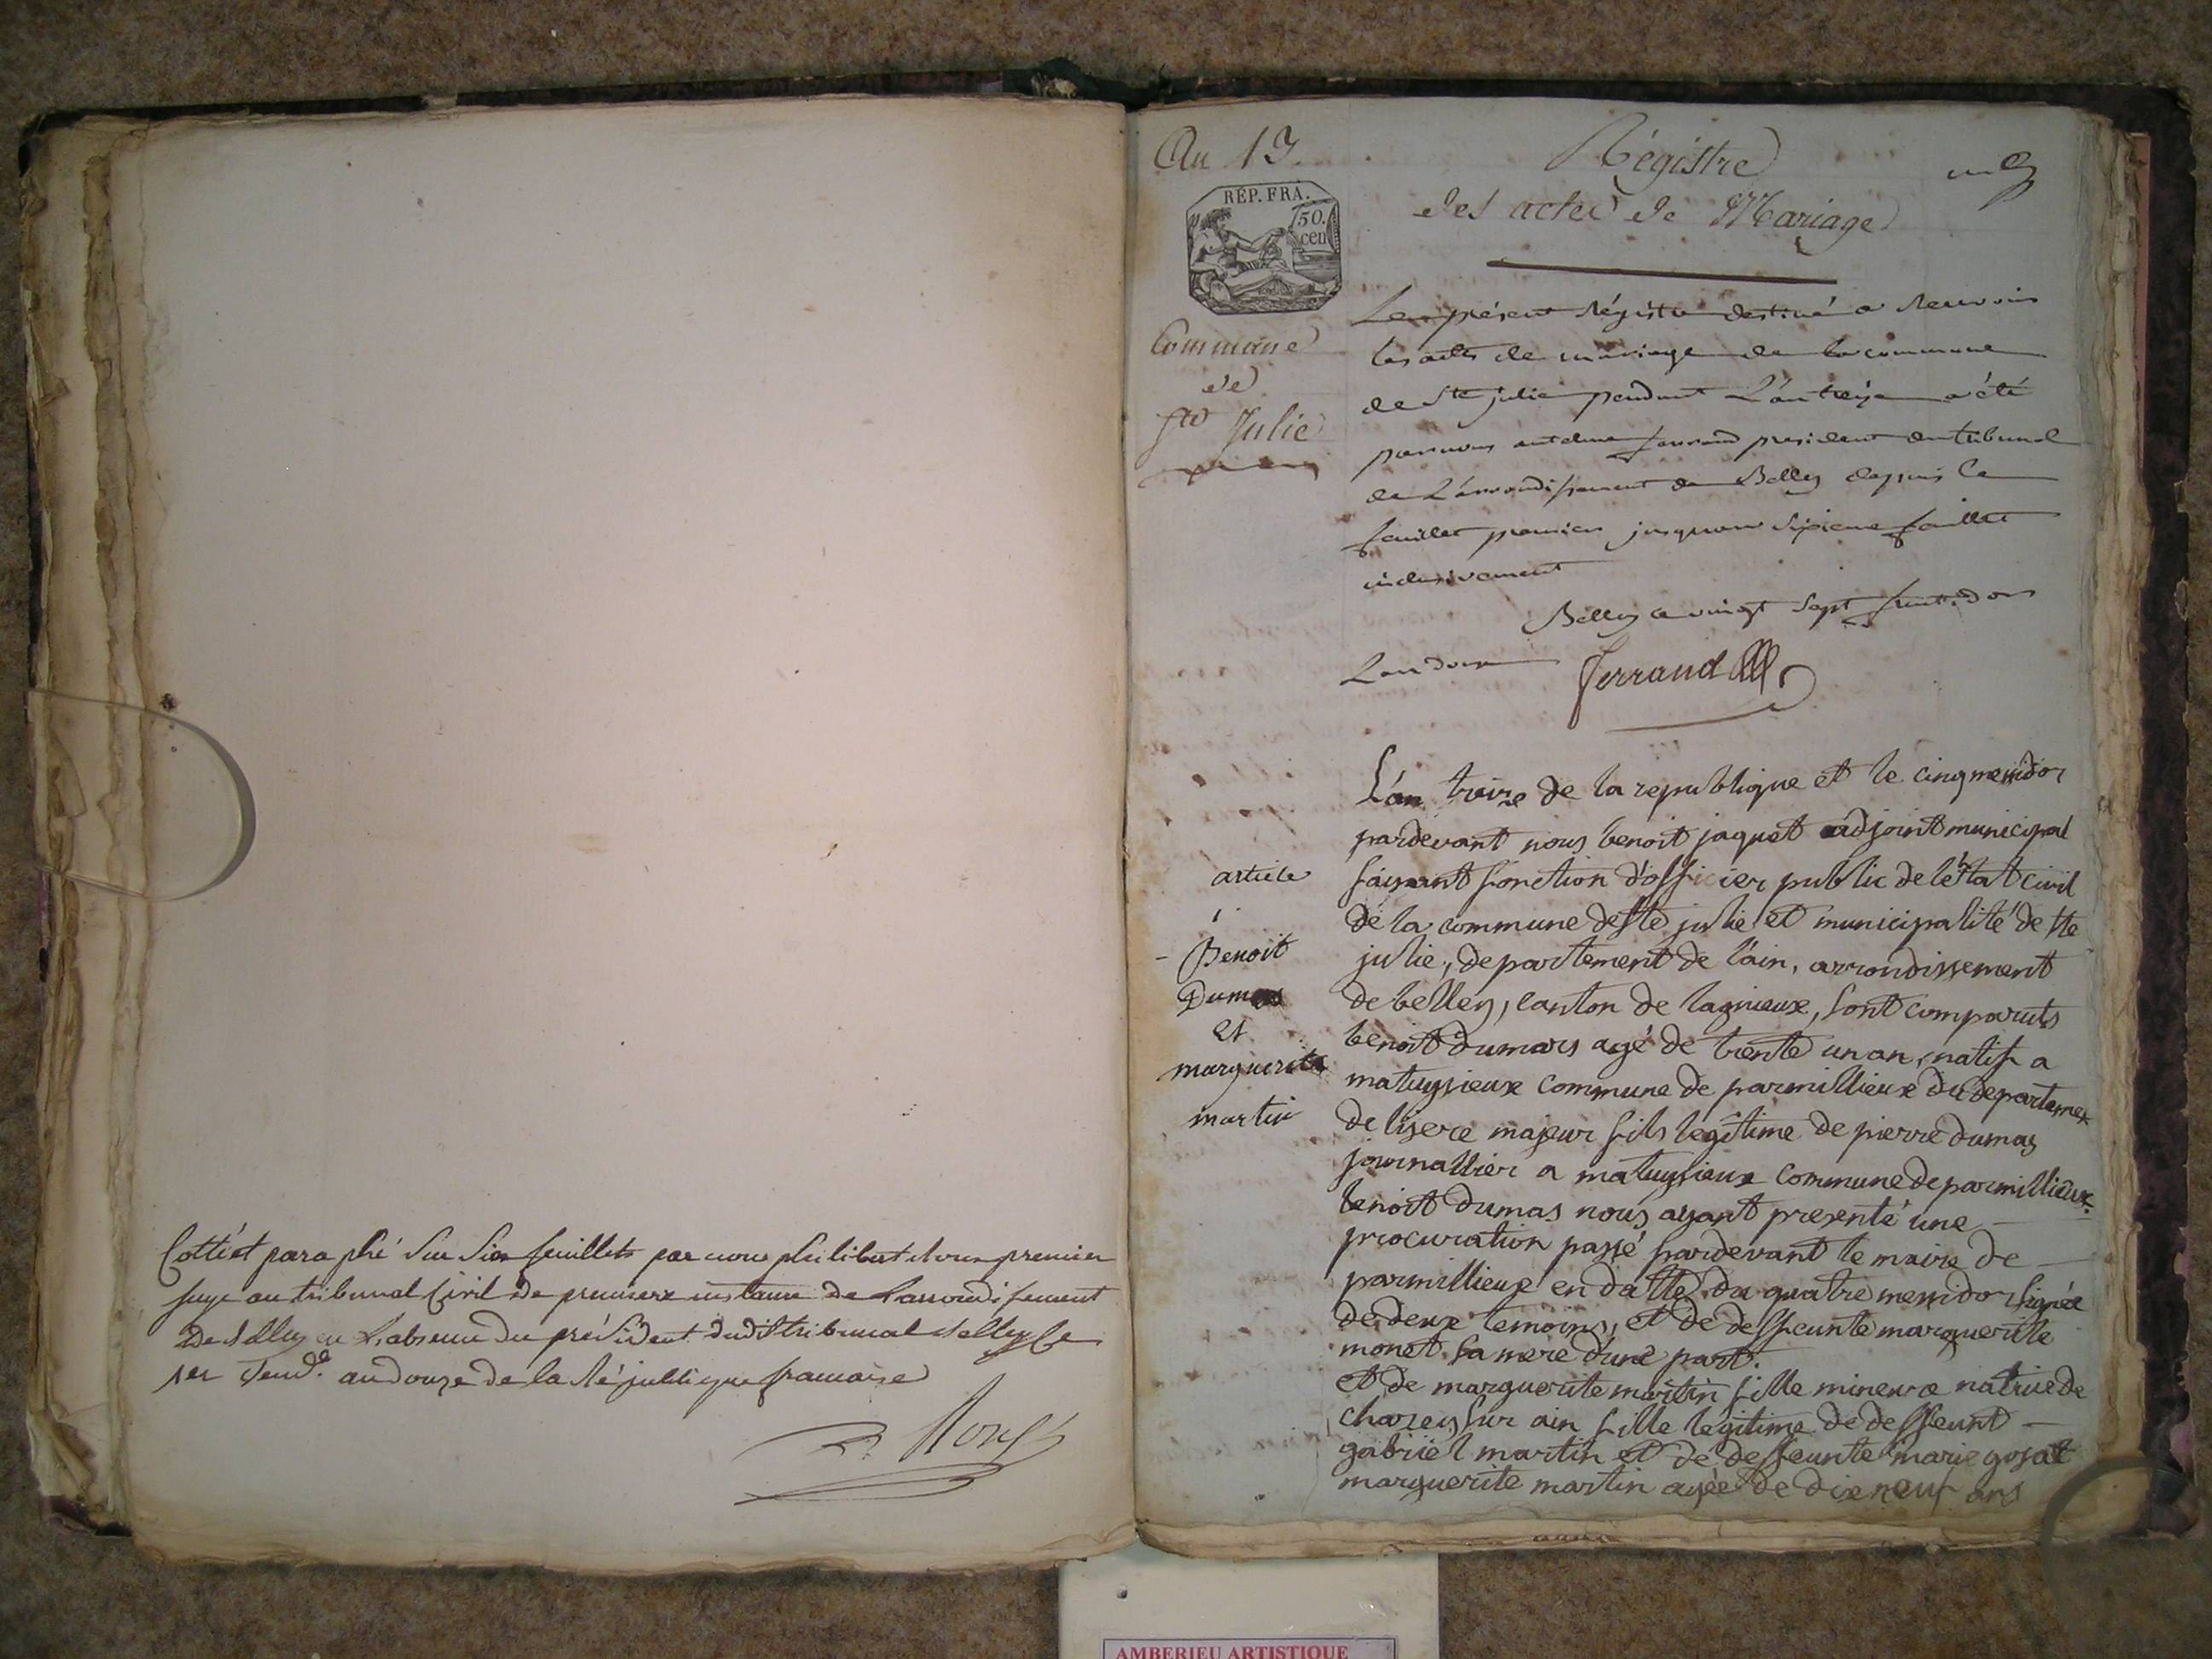 Cotté et paraphé sur six feuillets par nous philibert Monp premier
juge au tribunal Civil de premiere instance de L'arrondissement
De Belley en L'absence du président dudit tribunal Belley le
1er Vend.re an douze de la République francaise
An 13.
Régistre
un
des actes de Mariage
RÉP. FRA.
50.
cen
Commune
de
Ste Julie
Le présent Régistre destiné a Recevoir
les actes de mariage de la commune
de Ste julie pendant L'an treize a été
par nous antelme ferrand president du tribunal
de L'arrondissement de Belley depuis le
feuillet premier jusqu'au sixieme feuillet
inclusivement
Belley ce vingt sept fructidor
L'an douze Ferrand
L'an treize de la republique et le cinq messidor
pardevant nous benoit jaquet adjoint municipal
faisant fonction d'officier public de l'état civil
de la commune de Ste julie et municipalité de Ste
julie, departement de l'ain, arrondissement
de belley, canton de lagnieux, sont comparuts
benoit dumas agé de trente un an, natif a
matuysieux commune de parmillieux du departemen
de lisere majeur fils legitime de pierre dumas
journallier a matuysieux commune de parmillieux
benoit dumas nous ayant presenté une
procuration passé pardevant le maire de
parmillieux en datte du quatre messidor signée
de deux temoins, et de deffeunte marguerite
monet sa mere d'une part.
et de marguerite martin fille mineure natrive de
charey sur ain fille legitime de deffeunt
gabriel martin et de deffeunte marie gojat
marguerite martin agée de dixneuf ans
article
1
Benoit
Dumas
et
marguerite
martin
AMBERIEU ARTISTIQUE